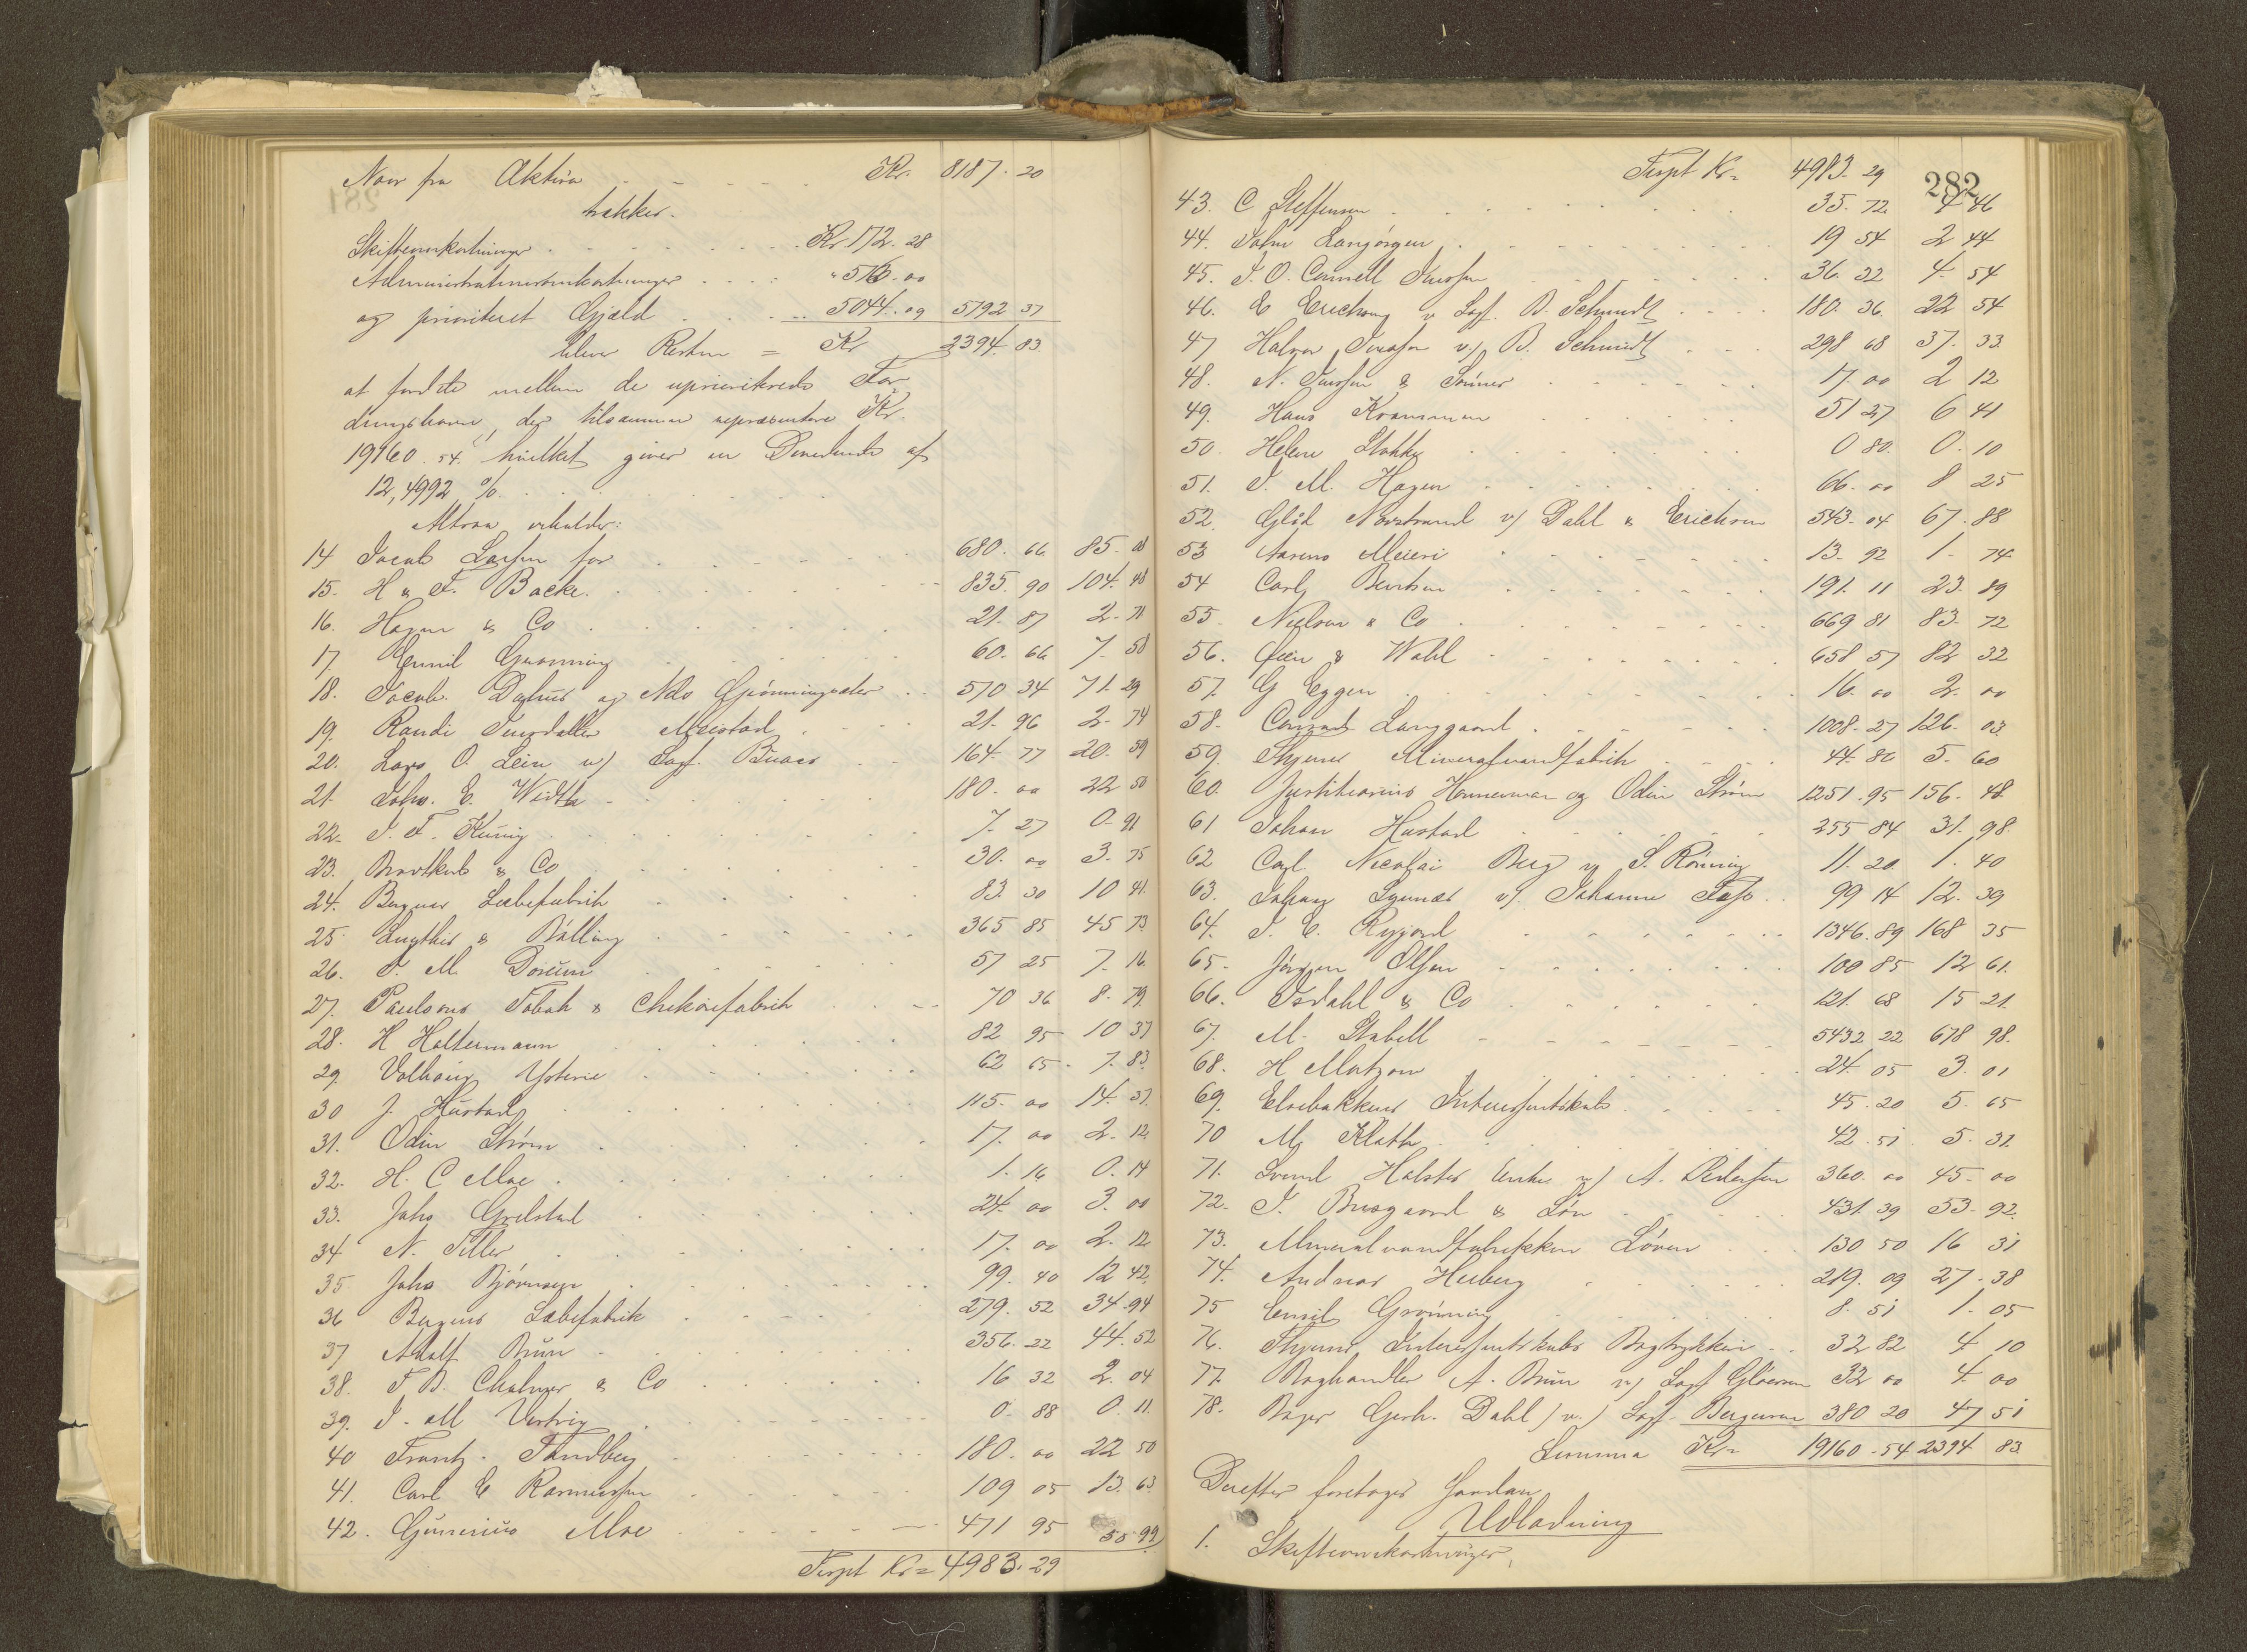 Naar fra Aktiva Kr. 8187. 20
trækkes.
Skifteomkostninger Kr 172. 28
Administrationsomkostninger " 576. 00
og prioriteret Gjæld 5044. 09 5792 37
bliver Resten = Kr 2394. 83
at fordele mellem de uprioriterede For
dringshavere, der tilsammen repræsentere Kr.
19160. 54. hvilket giver en Dividende af
12,4992 %.
Altsaa erholder:
14 Jacob Larsen for 680. 66 85. 08
15. H & F. Backe. 835. 90 104. 48
16. Hagen & Co 21. 87 2. 71
17. Emil Grønning 60. 66 7. 58
18. Jacob Dahus og Nils Grønningsæter 570 34 71. 29
19. Randi Meistad 21. 96 2. 74
20. Lars O. Lein v/ Sagf. Buaas 164. 77 20. 59
21. Johs. E. Width 180. 00 22 50
22. J. F. Kunig 7. 27 0. 91
23. Brodtkorb & Co 30. 00 3. 75
24. Bergens Sæbefabrik 83. 30 10 41.
25. Lugthes & Bølling 365 85 45 73
26. T. M. Dorum 57 25 7. 16
27. Paulsens Tobak & Chikoriefabrik 70 36 8. 79
28. H Holtermann 82 95 10 37
29. Valhaug Ysterie 62 65. 7. 83.
30 J. Hustad 115. 00 14. 37.
31. Odin Strøm 17. 00 2. 12.
32. H. C Moe 1. 16 0. 14
33. Johs Grelstad 24. 00 3. 00
34 N. Tiller 17. 00 2. 12
35 Johs Bjørnsen 99. 40 12 42.
36 Bergens Sæbefabrik 279. 52 34. 94
37 Adolf Bruun 356. 22 44. 52
38. F. B. Chalmer & Co 16 32 2. 04
39. J. M Vertvig 0. 88 0. 11.
40 Frantz Sandberg 180. 00 22 50
41. Carl E Rasmussen 109 05 13. 63.
42. Gunerius Moe 471 95 58 99
Trspt Kr = 4983. 29
282
Trspt Kr = 4983. 29
43. C Steffensen 35. 72 4 46
44. John Langørgen 19 54 2 44
45. J. O. Connell Iversen 36. 32 4. 54
46. E Erichsen v Sagf. B. Schmidt 180. 36. 22 54
47 Halvor Iversen v/ B. Schmidt 298 68 37. 33.
48. N. Iversen & Sønner 17. 00 2 12
49. Hans Kvamme 51 27 6 41
50. Helene Stokke 0 80. 0. 10
51. J. M. Hagen 66. 00 8 25
52. Glød Norstrand v/ Dahl & Erichsen 543. 04 67. 88
53 Aasens Meieri 13. 92 1. 74
54 Carl Berntsen 191. 11 23. 89
55. Nielsen & Co 669 81 83. 72
56. Geen & Wahl 658 57 82 32
57. G Eggen 16. 00 2. 00
58. Conrad Langgaard 1008. 27 126. 03
59. Thjems Mineralvandfabrik 44. 80 5. 60
60. Justitiarius Hannemoe og Odin Strøm 1251. 95 156. 48
61 Johan Hustad 255 84 31. 98.
62 Carl Nicolai Berg v/ S. Rønning 11. 20 1. 40
63. Johan v/ Johanne 99 14 12. 39
64. J. E. Rygaard 1346. 89 168 35
65. Jørgen Olsen 100 85 12 61.
66. Isdahl & Co 121. 68 15 21.
67. M. Stabell 5432 22 678 98.
68. H Matzow 24. 05 3. 01
69. Elvebakkens Interessentskab 45. 20 5. 65
70 M Klath 42. 51 5. 31.
71. Svend Halsets Enke v/ A. Pedersen 360. 00 45. 00
72. J. Busgaard & Søn 431. 39 53. 92.
73. Mineralvandfabrikken Løven 130 50 16 31
74. Andreas Heiberg 219. 09 27. 38
75 Emil Grønning 8. 51 1. 05
76. Thjems Interessentskabs Bogtrykkeri 32 82 4 10
77. Boghandler A. Bruun v/ Sagf Gløersen 32 00 4. 00
78. Bager Gerh. Dahl v./ Sagf. Bergersen 380 20 47 51
Summa Kr = 19160. 54 2394 83.
Derefter foretages saadan
Udlodning
1. Skifteomkostninger,